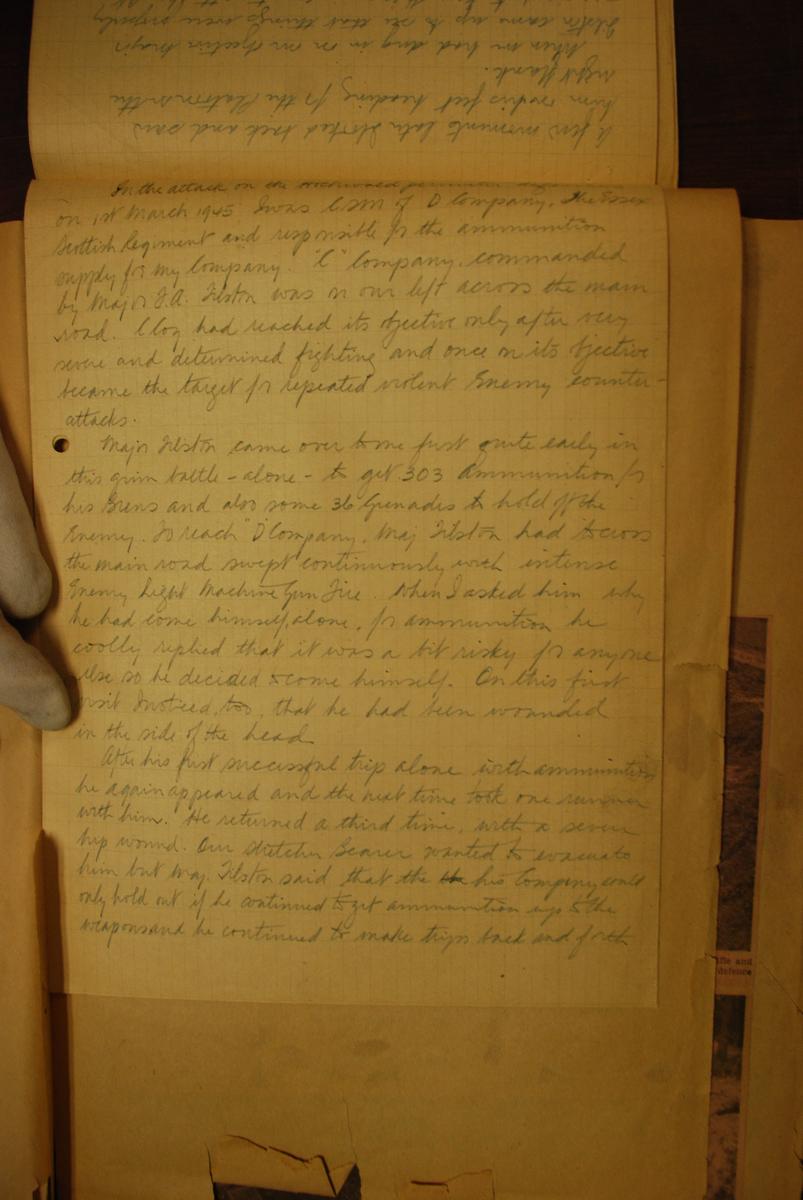 A few moments later I looked back and saw
him on his feet heading for the Platoon on the
right flank.
When we had dug in on our objective Major
Tilston came up to see that things were properly
In the attack on the
on 1st March 1945 I was C.S.M of D Company, The Essex
Scottish Regiment and responsible for the ammunition
supply for my Company. "C" Company, commanded
by Major F.A. Tilston was on our left across the main
road. C Coy had reached its objective only after very
severe and determined fighting and once on its objective
became the target for repeated violent Enemy counter-
attacks.
Major Tilston came over to me first quite early in
this grim battle - alone - to get .303 ammunition for
his Brens and also some 36 Grenades to hold off the
Enemy. To reach "D Company, Maj Tilston had to cross
the main road swept continuously with intense
Enemy Light Machine Gun Fire. When I asked him why
he had come himself, alone, for ammunition he
coolly replied that it was a bit risky for anyone
else so he decided to come himself. On this first
visit I noticed, too, that he had been wounded
in the side of the head.
After his first successful trip alone with ammunition
he again appeared and the next time took one runner
with him. He returned a third time, with a severe
hip wound. Our stretcher bearer wanted to evacuate
him but Maj. Tilston said that the his Company could
only hold out if he continued to get ammunition up to the
weapons and he continued to make trips back and forth
rifle and
defence